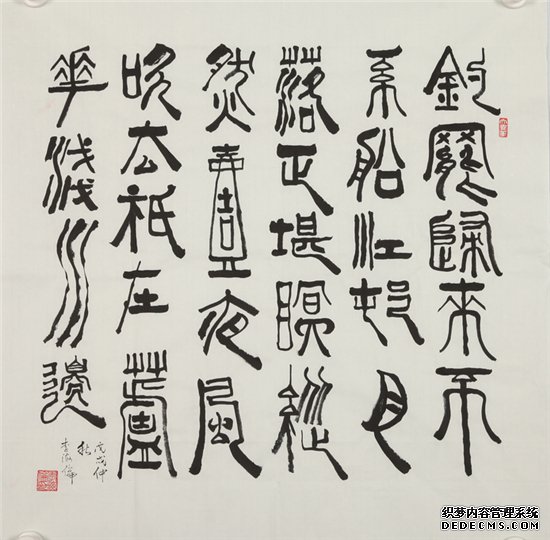 釣罷歸來不
系船江邨月
落正堪瞑縱
然壹夜風
吹去祇在蘆
華淺水邊
戊戌仲
秋
织梦内容管理系统
DEDECMS.COM